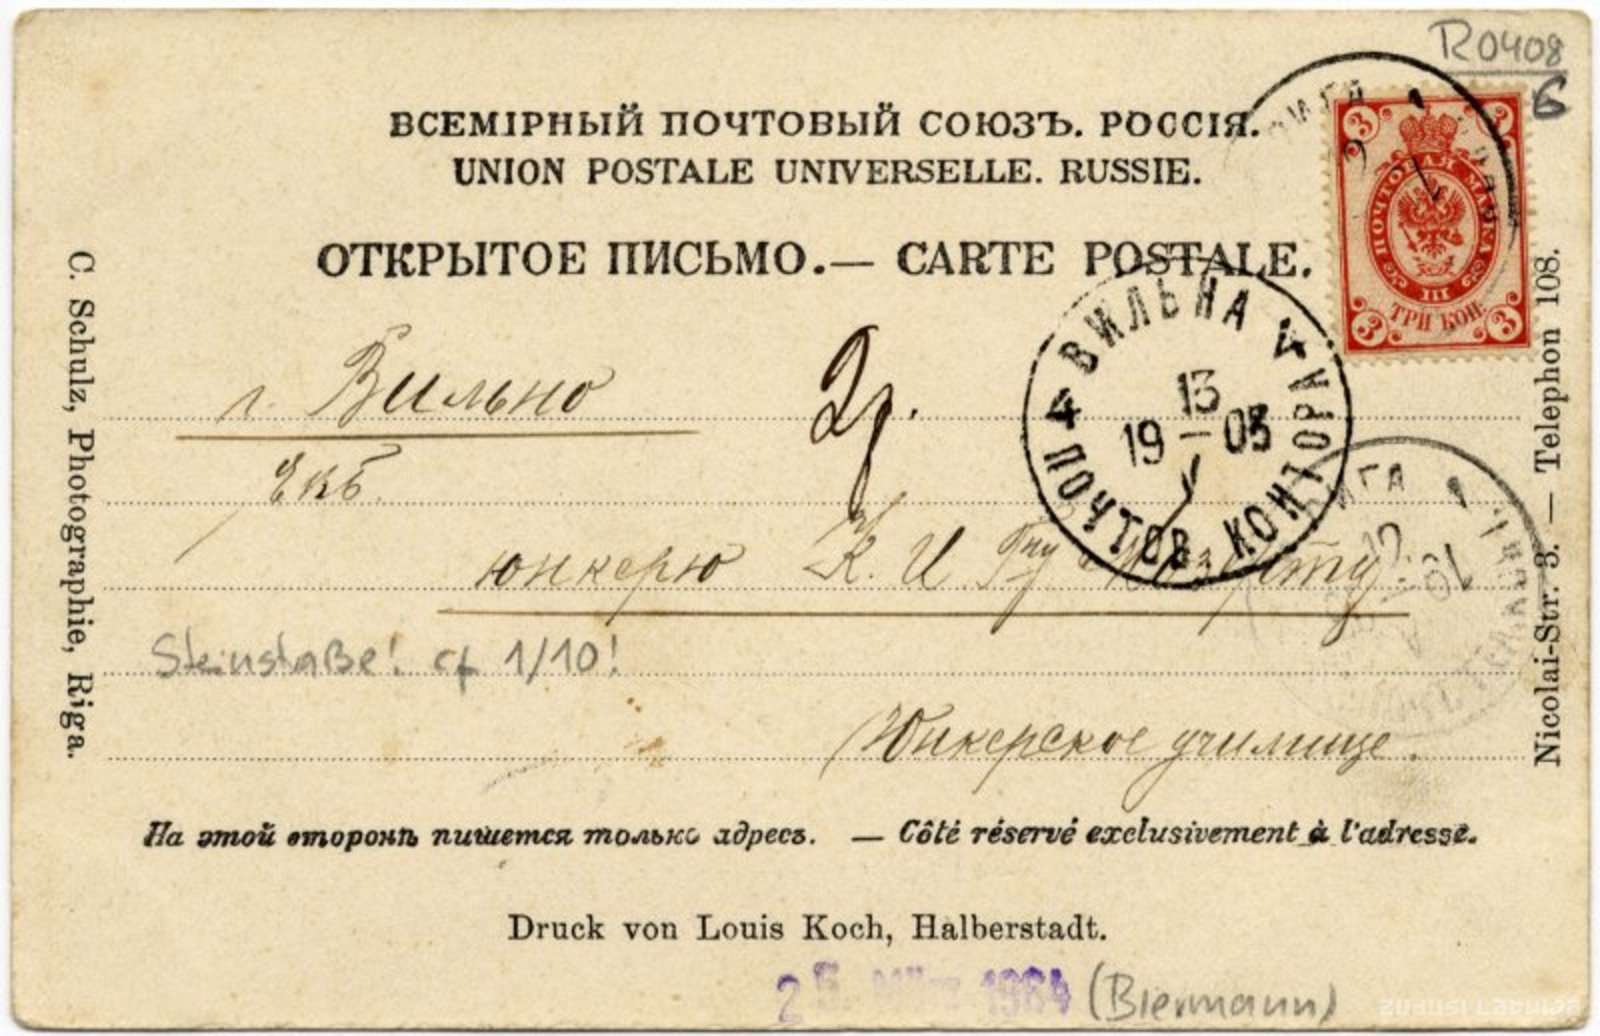 R0408
6
ВСЕМІРНЫЙ ПОЧТОВЫЙ СОЮЗЪ. РОССІЯ.
UNION POSTALE UNIVERSELLE. RUSSIE.
ОТКРЫТОЕ ПИСЬМО.— CARTE POSTALE.
3 3
ПОЧТОВАЯ МАРКА
III
ТРИ КОП.
3 3
РИГА
C. Schulz, Photographie, Riga.
Nicolai-Str. 3. — Telephon 108.
4 ВИЛЬНА 4
13
19 — 05
I
ПОЧТОВ. КОНТОРА
РИГА
г. Вильно
Екб.
юнкерю К. И.
Steinstraße! cf 1/10!
Юнкерское училище.
На этой сторонѣ пишется только адресъ. — Côté réservé exclusivement à l'adresse.
Druck von Louis Koch, Halberstadt.
25. März 1984 (Biermann)
zudusi Latvija